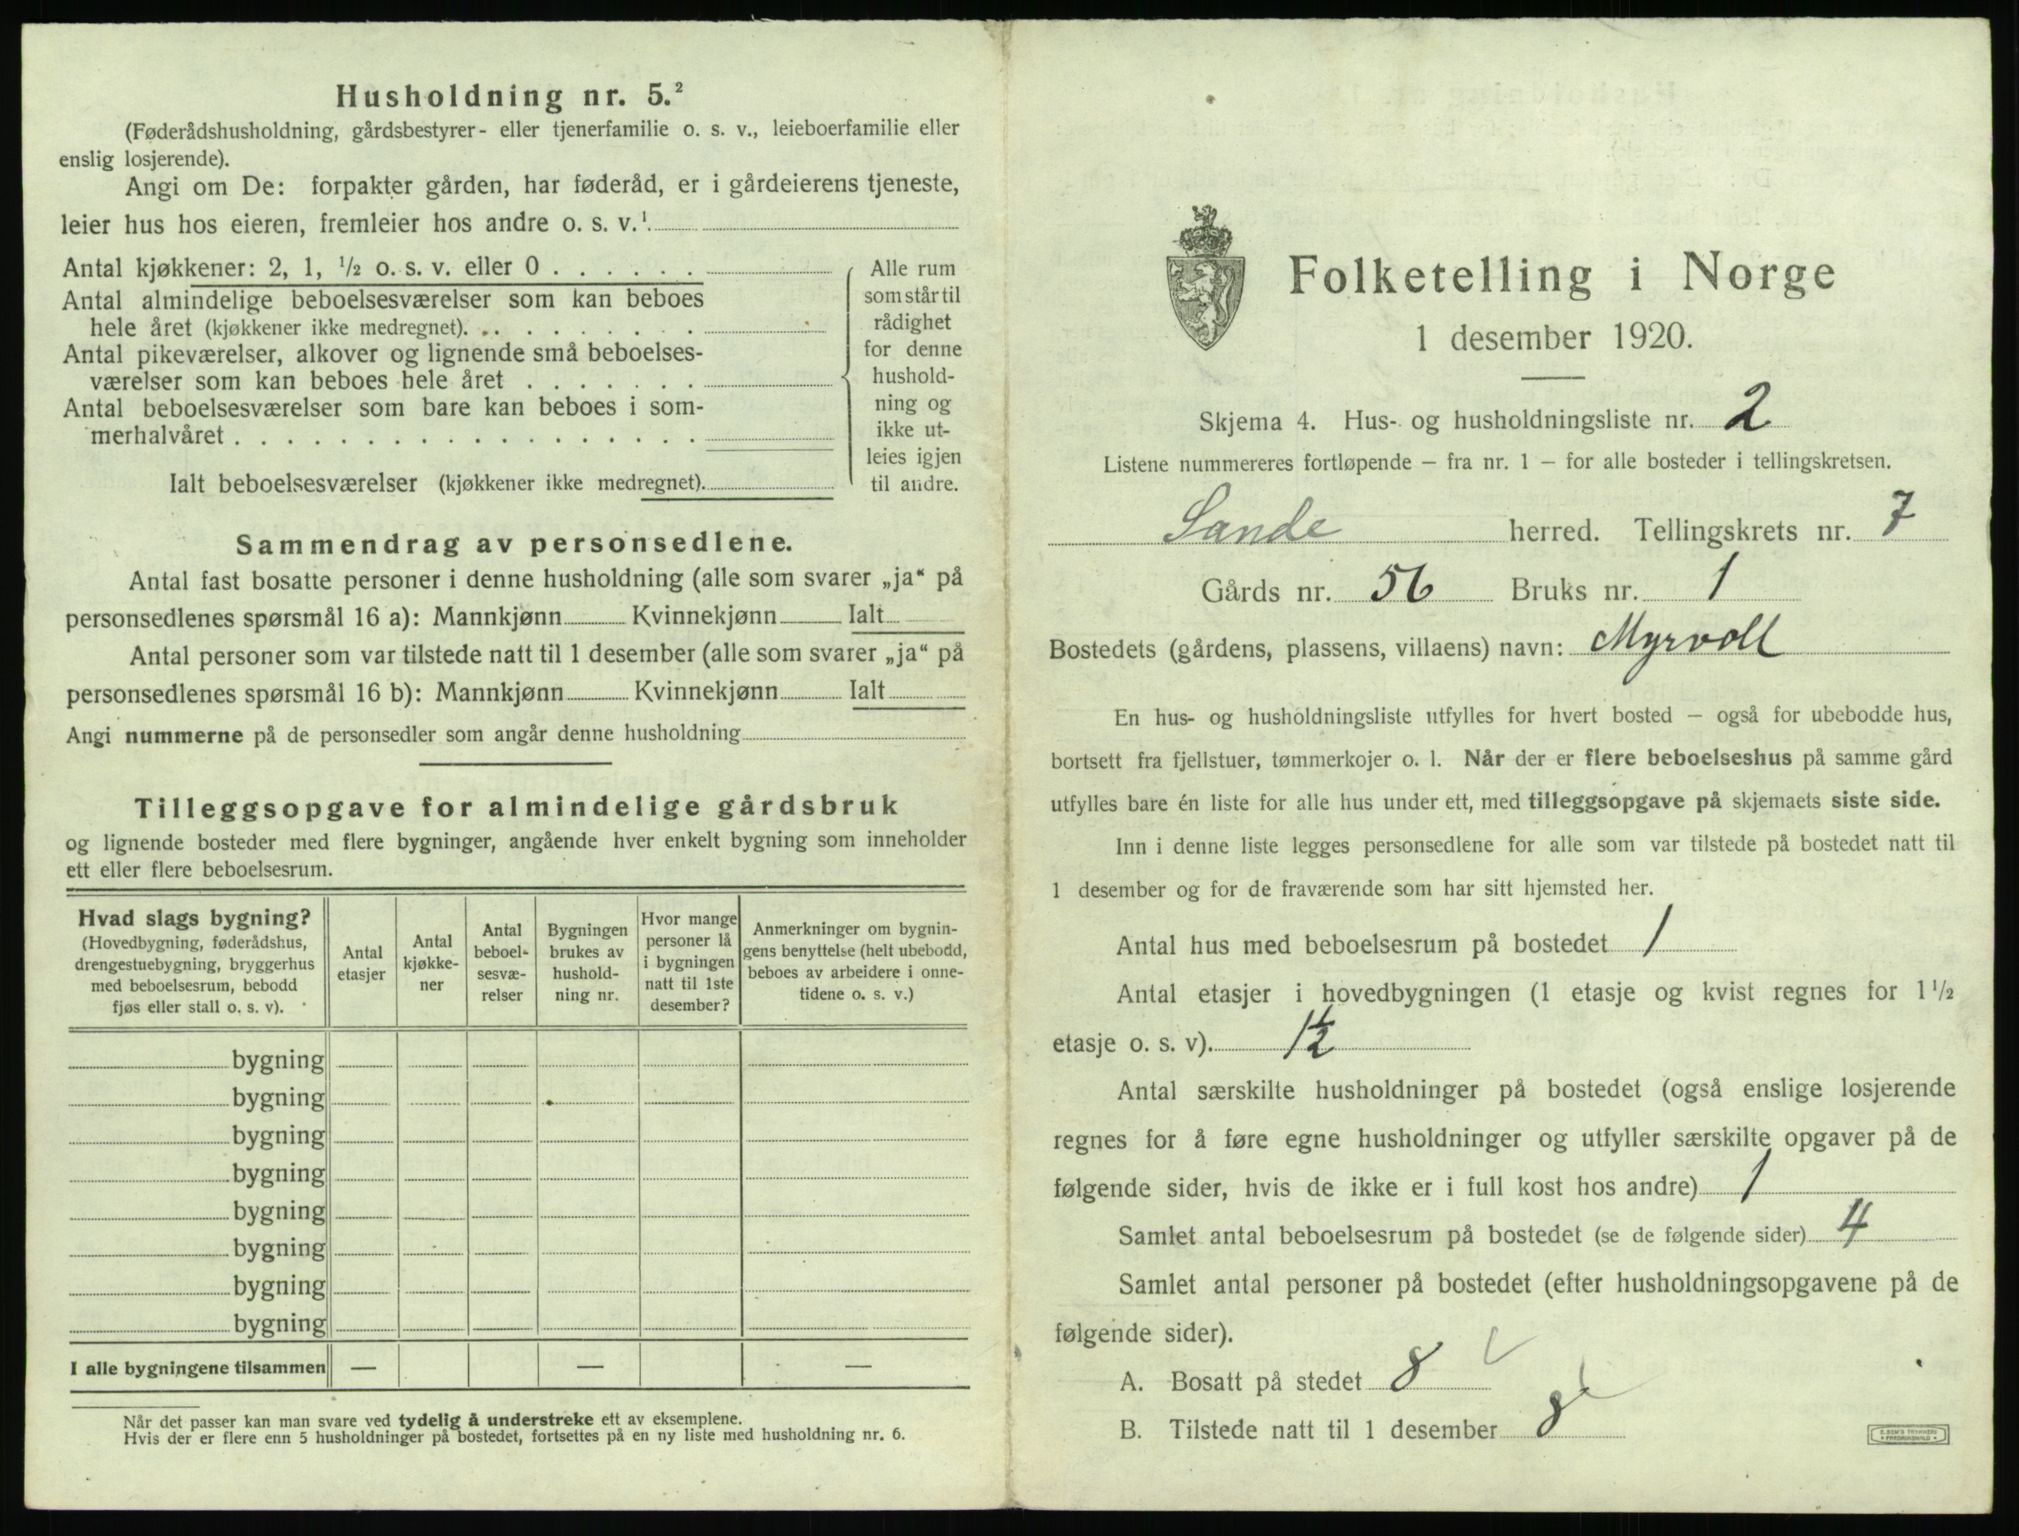 Husholdning nr. 5.²
(Føderådshusholdning, gårdsbestyrer- eller tjenerfamilie o. s. v., leieboerfamilie eller
enslig losjerende).
Angi om De: forpakter gården, har føderåd, er i gårdeierens tjeneste,
leier hus hos eieren, fremleier hos andre o. s. v.¹
Antal kjøkkener: 2, 1, ½ o. s. v. eller 0 . . . . . .
Antal almindelige beboelsesværelser som kan beboes
hele året (kjøkkener ikke medregnet). . . . . . . . .
Antal pikeværelser, alkover og lignende små beboelses-
værelser som kan beboes hele året . . . . . . .
Antal beboelsesværelser som bare kan beboes i som-
merhalvåret . . . . . . . . . . . . . . . . . .
Ialt beboelsesværelser (kjøkkener ikke medregnet).
Alle rum
som står til
rådighet
for denne
hushold-
ning og
ikke ut-
leies igjen
til andre.
Sammendrag av personsedlene.
Antal fast bosatte personer i denne husholdning (alle som svarer „ja“ på
personsedlenes spørsmål 16 a): Mannkjønn Kvinnekjønn Ialt
Antal personer som var tilstede natt til 1 desember (alle som svarer „ja“ på
personsedlenes spørsmål 16 b): Mannkjønn Kvinnekjønn Ialt
Angi nummerne på de personsedler som angår denne husholdning
Tilleggsopgave for almindelige gårdsbruk
og lignende bosteder med flere bygninger, angående hver enkelt bygning som inneholder
ett eller flere beboelsesrum.
Hvad slags bygning?
(Hovedbygning, føderådshus,
drengestuebygning, bryggerhus
med beboelsesrum, bebodd
fjøs eller stall o. s. v).
Antal
etasjer
Antal
kjøkke-
ner
Antal
beboel-
sesvæ-
relser
Bygningen
brukes av
hushold-
ning nr.
Hvor mange
personer lå
i bygningen
natt til 1ste
desember?
Anmerkninger om bygnin-
gens benyttelse (helt ubebodd,
beboes av arbeidere i onne-
tidene o. s. v.)
bygning
bygning
bygning
bygning
bygning
bygning
bygning
bygning
I alle bygningene tilsammen — — —
Når det passer kan man svare ved tydelig å understreke ett av eksemplene.
Hvis der er flere enn 5 husholdninger på bostedet, fortsettes på en ny liste med husholdning nr. 6.
Folketelling i Norge
1 desember 1920.
Skjema 4. Hus- og husholdningsliste nr. 2
Listene nummereres fortløpende – fra nr. 1 – for alle bosteder i tellingskretsen.
Sande herred. Tellingskrets nr. 7
Gårds nr. 56 Bruks nr. 1
Bostedets (gårdens, plassens, villaens) navn: Myrvoll
En hus- og husholdningsliste utfylles for hvert bosted – også for ubebodde hus,
bortsett fra fjellstuer, tømmerkojer o. l. Når der er flere beboelseshus på samme gård
utfylles bare én liste for alle hus under ett, med tilleggsopgave på skjemaets siste side.
Inn i denne liste legges personsedlene for alle som var tilstede på bostedet natt til
1 desember og for de fraværende som har sitt hjemsted her.
Antal hus med beboelsesrum på bostedet 1
Antal etasjer i hovedbygningen (1 etasje og kvist regnes for 1 ½
etasje o. s. v). 1½
Antal særskilte husholdninger på bostedet (også enslige losjerende
regnes for å føre egne husholdninger og utfyller særskilte opgaver på de
følgende sider, hvis de ikke er i full kost hos andre) 1
Samlet antal beboelsesrum på bostedet (se de følgende sider) 4
Samlet antal personer på bostedet (efter husholdningsopgavene på de
følgende sider).
A. Bosatt på stedet 8
B. Tilstede natt til 1 desember 8